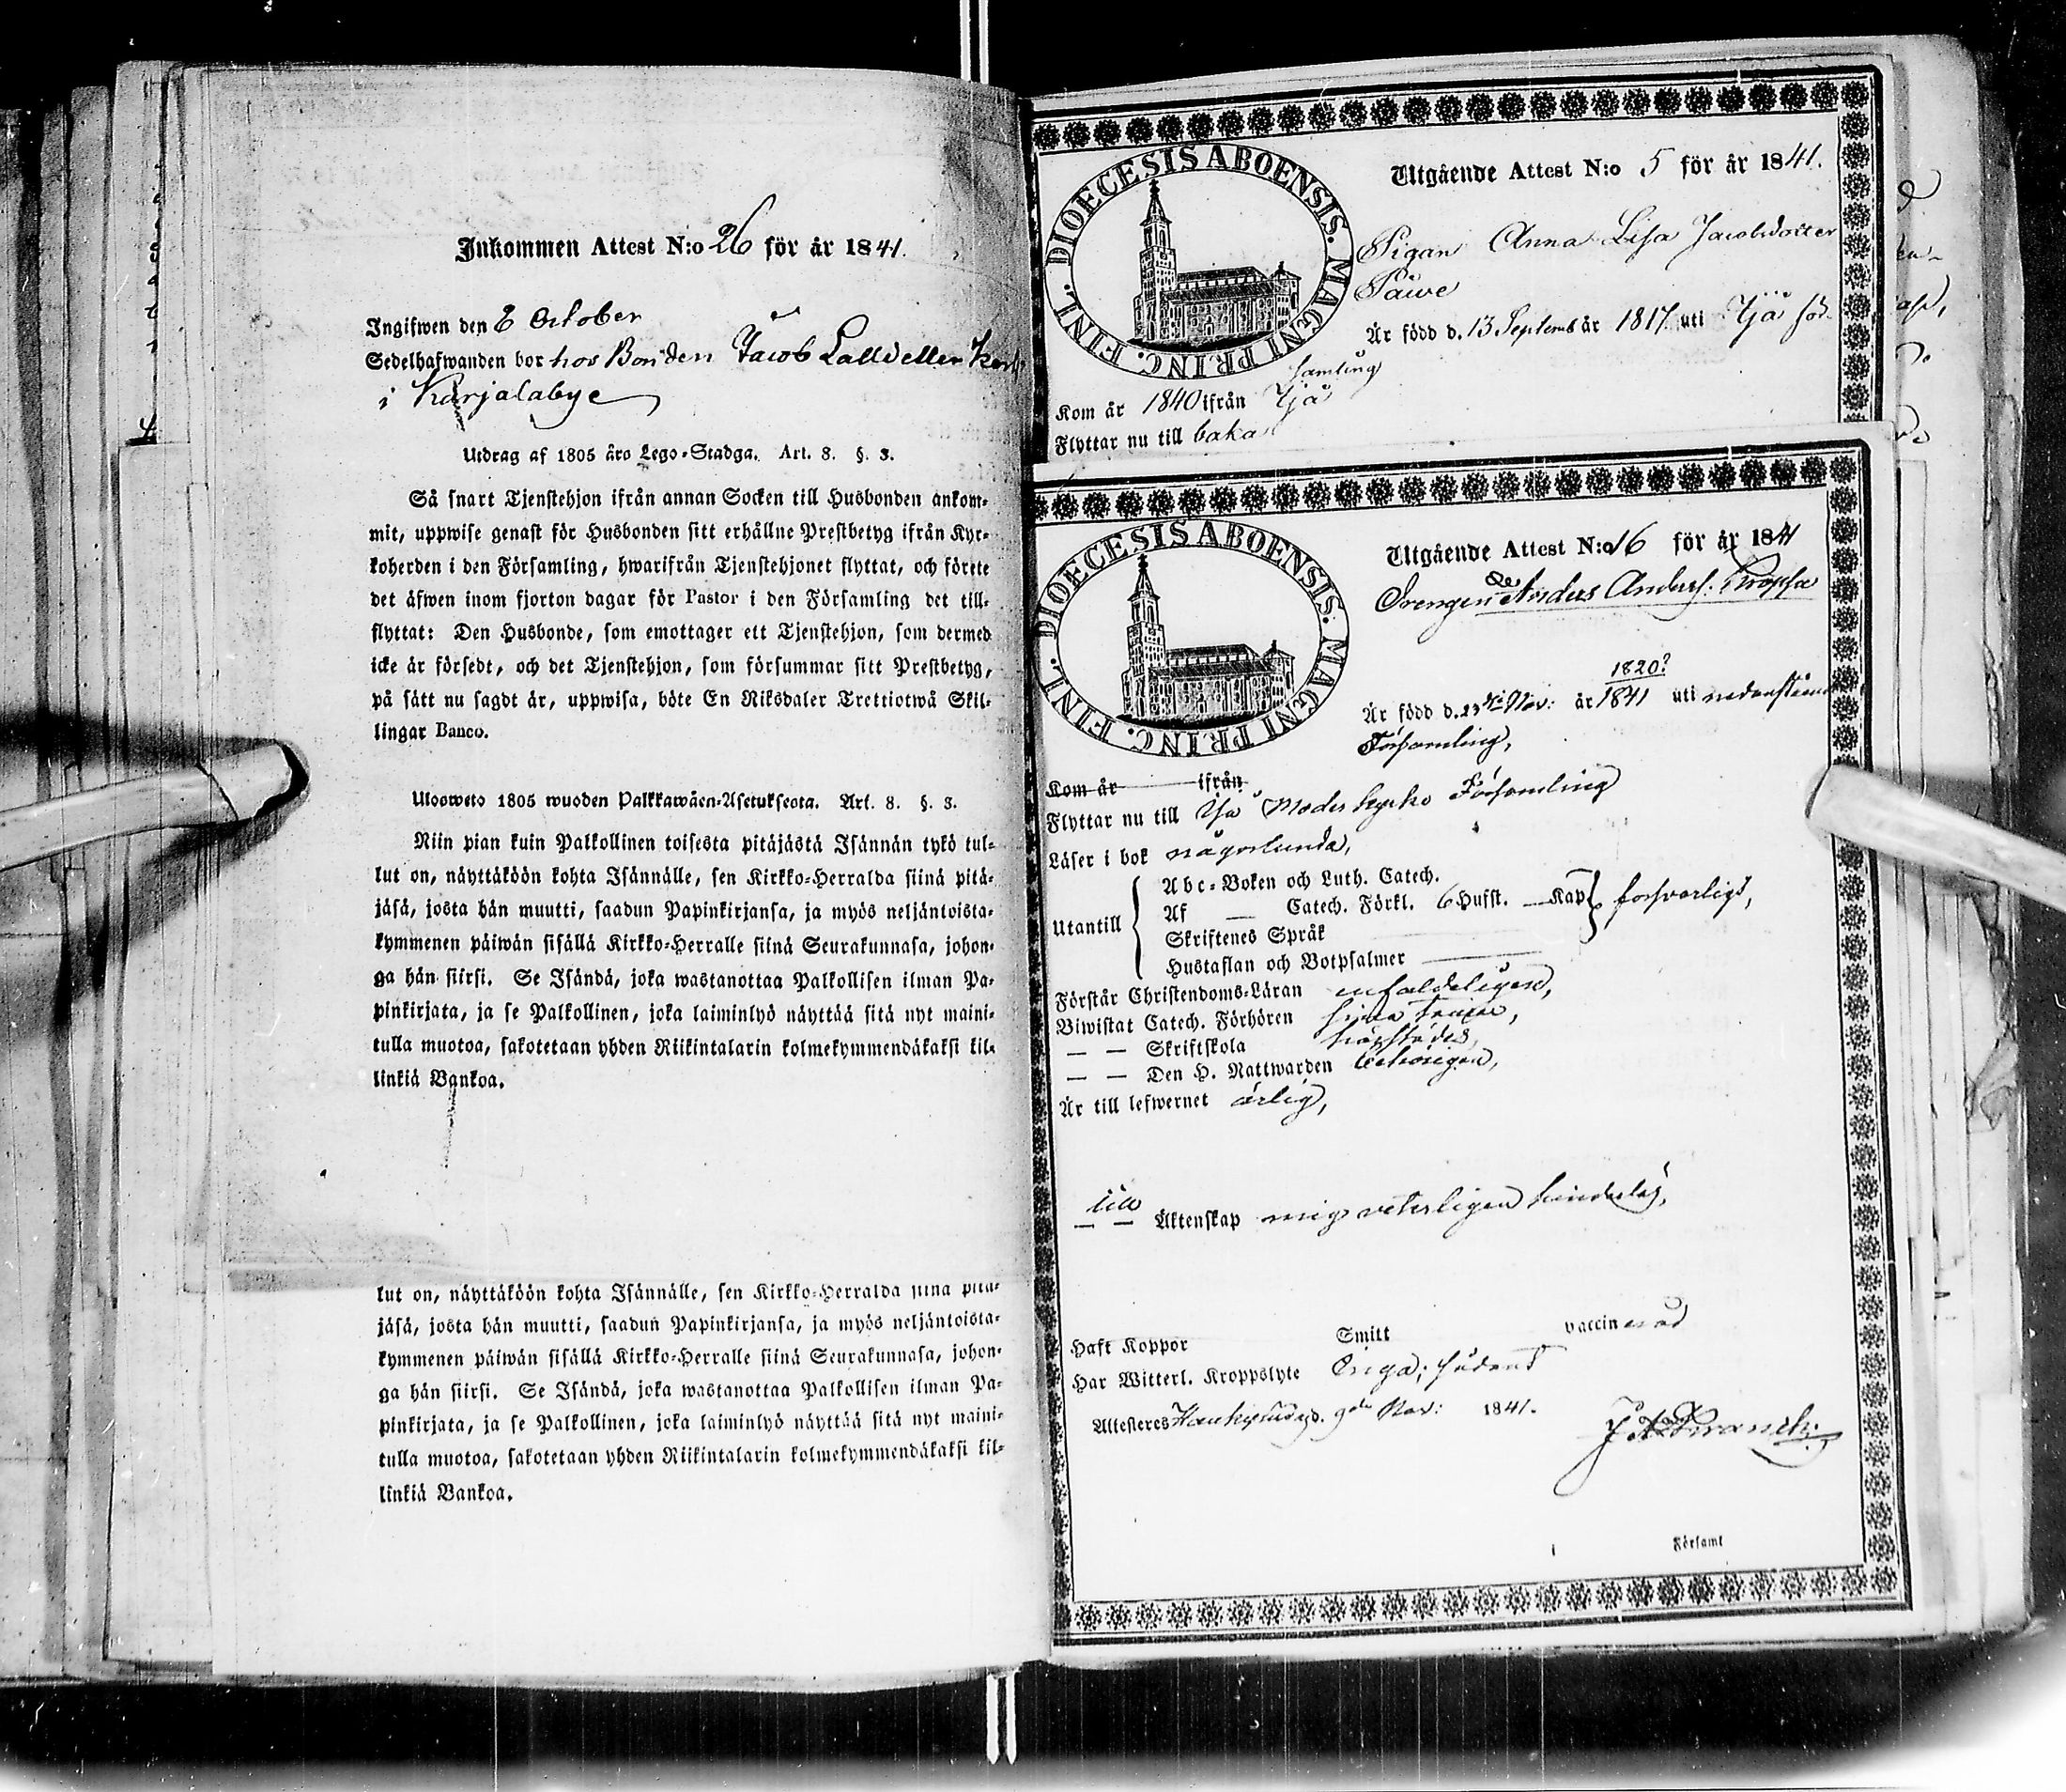 Inkommen Attest N:o 26 för år 1841.
Ingifwen den 8 October
Sedelhafwanden bor hos Bonden Jacob Lalldeller
i Karjalabye
Utdrag af 1805 års Lego-Stadga. Art. 8. §. 3.
Så snart Tjenstehjon ifrån annan Socken till Husbonden ankom-
mit, uppwise genast för Husbonden sitt erhållne Prestbetyg ifrån Kyr-
koherden i den Församling, hwarifrån Tjenstehjonet flyttat, och förete
det äfwen inom fjorton dagar för Pastor i den Församling det till-
flyttat: Den Husbonde, som emottager ett Tjenstehjon, som dermed
icke är försedt, och det Tjenstehjon, som försummar sitt Prestbetyg,
på sätt nu sagdt är, uppwisa, böte En Riksdaler Trettiotwå Skil-
lingar Banco.
Uloosweto 1805 wuoden Palkkawäen-Asetuksesta. Art. 8. §. 3.
Niin pian kuin Palkollinen toisesta pitäjästä Isännän tykö tul-
lut on, näyttäköön kohta Isännälle, sen Kirkko-Herralda siinä pitä-
jäsä, josta hän muutti, saadun Papinkirjansa, ja myös neljäntoista-
kymmenen päiwän sisällä Kirkko-Herralle siinä Seurakunnasa, johon-
ga hän siirsi. Se Isändä, joka wastanottaa Palkollisen ilman Pa-
pinkirjata, ja se Palkollinen, joka laiminlyö näyttää sitä nyt maini-
tulla muotoa, sakotetaan yhden Riikintalarin kolmekymmendäkaksi kil-
linkiä Bankoa.
lut on, näyttäköön kohta Isännälle, sen Kirkko-Herralda siinä pitä-
jäsä, josta hän muutti, saadun Papinkirjansa, ja myös neljäntoista-
kymmenen päiwän sisällä Kirkko-Herralle siinä Seurakunnasa, johon-
ga hän siirsi. Se Isändä, joka wastanottaa Palkollisen ilman Pa-
pinkirjata, ja se Palkollinen, joka laiminlyö näyttää sitä nyt maini-
tulla muotoa, sakotetaan yhden Riikintalarin kolmekymmendäkaksi kil-
linkiä Bankoa.
DIOECESIS ABOENSIS. MAGNI PRINC. FINL.
Utgående Attest N:o 5 för år 1841.
Pigan Anna Lisa Jacobsdotter
Päwe
Är född d. 13 Septemb år 1817. uti Yjä för-
samling
Kom år 1840 ifrån Yjä
Flyttar nu till baka
DIOECESIS ABOENSIS. MAGNI PRINC. FINL.
Utgående Attest N:o 16 för år 1841
Drengen Anders Anders. Knopsa
1820?
Är född d. 23 Nov: år 1841 uti nedanstående
Församling,
Kom år ifrån
Flyttar nu till Yjä Moderkyrko Församling
Läser i bok någorlunda,
Abc-Boken och Luth. Catech.
Utantill Af — Catech. Förkl. 6 Hufst. — Kap. försvarligt,
Skriftenes Språk
Hustaflan och Botpsalmer
Förstår Christendoms-Läran enfaldeligen,
Biwistat Catech. Förhören sina
— — Skriftskola
— — Den H. Nattwarden behörigen,
Är till lefwernet ärlig,
till
— — Äktenskap mig veterligen hinderlös,
Haft Koppor Smitt vaccinerad
Har Witterl. Kroppslyte Inga; sådant
Attesteras d. 9de Nov: 1841.
Församl